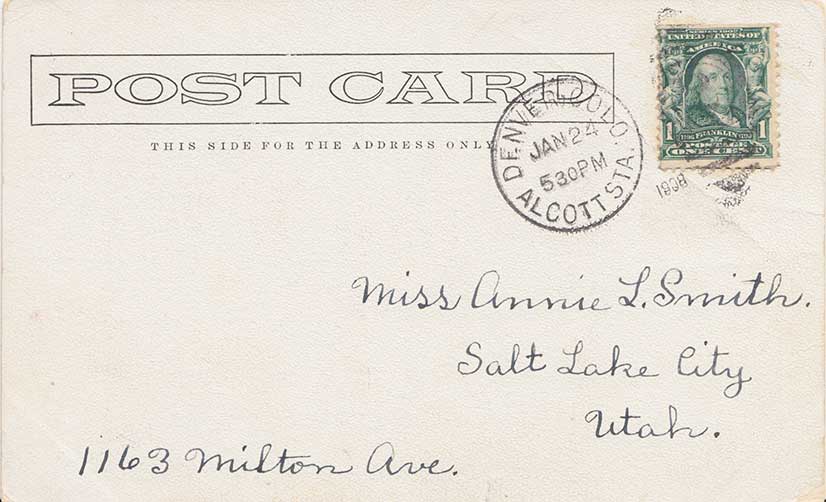 POST CARD
THIS SIDE FOR THE ADDRESS ONLY
DENVER, COLO.
JAN 24
530PM
ALCOTT STA.
SERIES 1902
UNITED STATES OF
AMERICA
1 FRANKLIN 1
POSTAGE
ONE CENT
Miss Annie L. Smith.
Salt Lake City
Utah.
1163 Milton Ave.